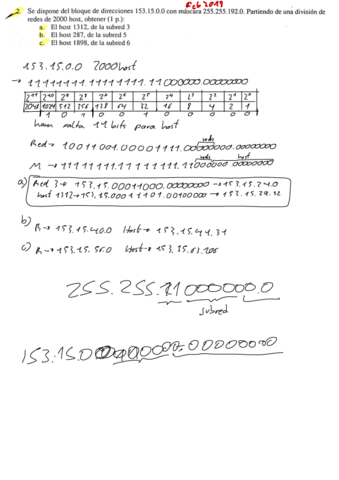 Feb 2019
2. Se dispone del bloque de direcciones 153.15.0.0 con máscara 255.255.192.0. Partiendo de una división de
redes de 2000 host, obtener (1 p.):
a. El host 1312, de la subred 3
b. El host 287, de la subred 5
c. El host 1898, de la subred 6
153.15.0.0 2000 host
→ 11111111.11111111.11000000.00000000
2¹¹ 2¹⁰ 2⁹ 2⁸ 2⁷ 2⁶ 2⁵ 2⁴ 2³ 2² 2¹ 2⁰
2048 1024 512 256 128 64 32 16 8 4 2 1
1 0 1 0 0 1 0 0 0 0 0
hacen falta 11 bits para host
Red → 10011001.00001111.00000000.00000000
M → 11111111.11111111.11000000.00000000
a) Red 3 → 153.15.00011000.00000000 → 153.15.24.0
host 1312 → 153.15.00011101.00100000 → 153.15.29.32
b) R → 153.15.40.0 Host → 153.15.41.31
c) R → 153.15.56.0 Host → 153.15.63.106
255.255.11000000.0
subred